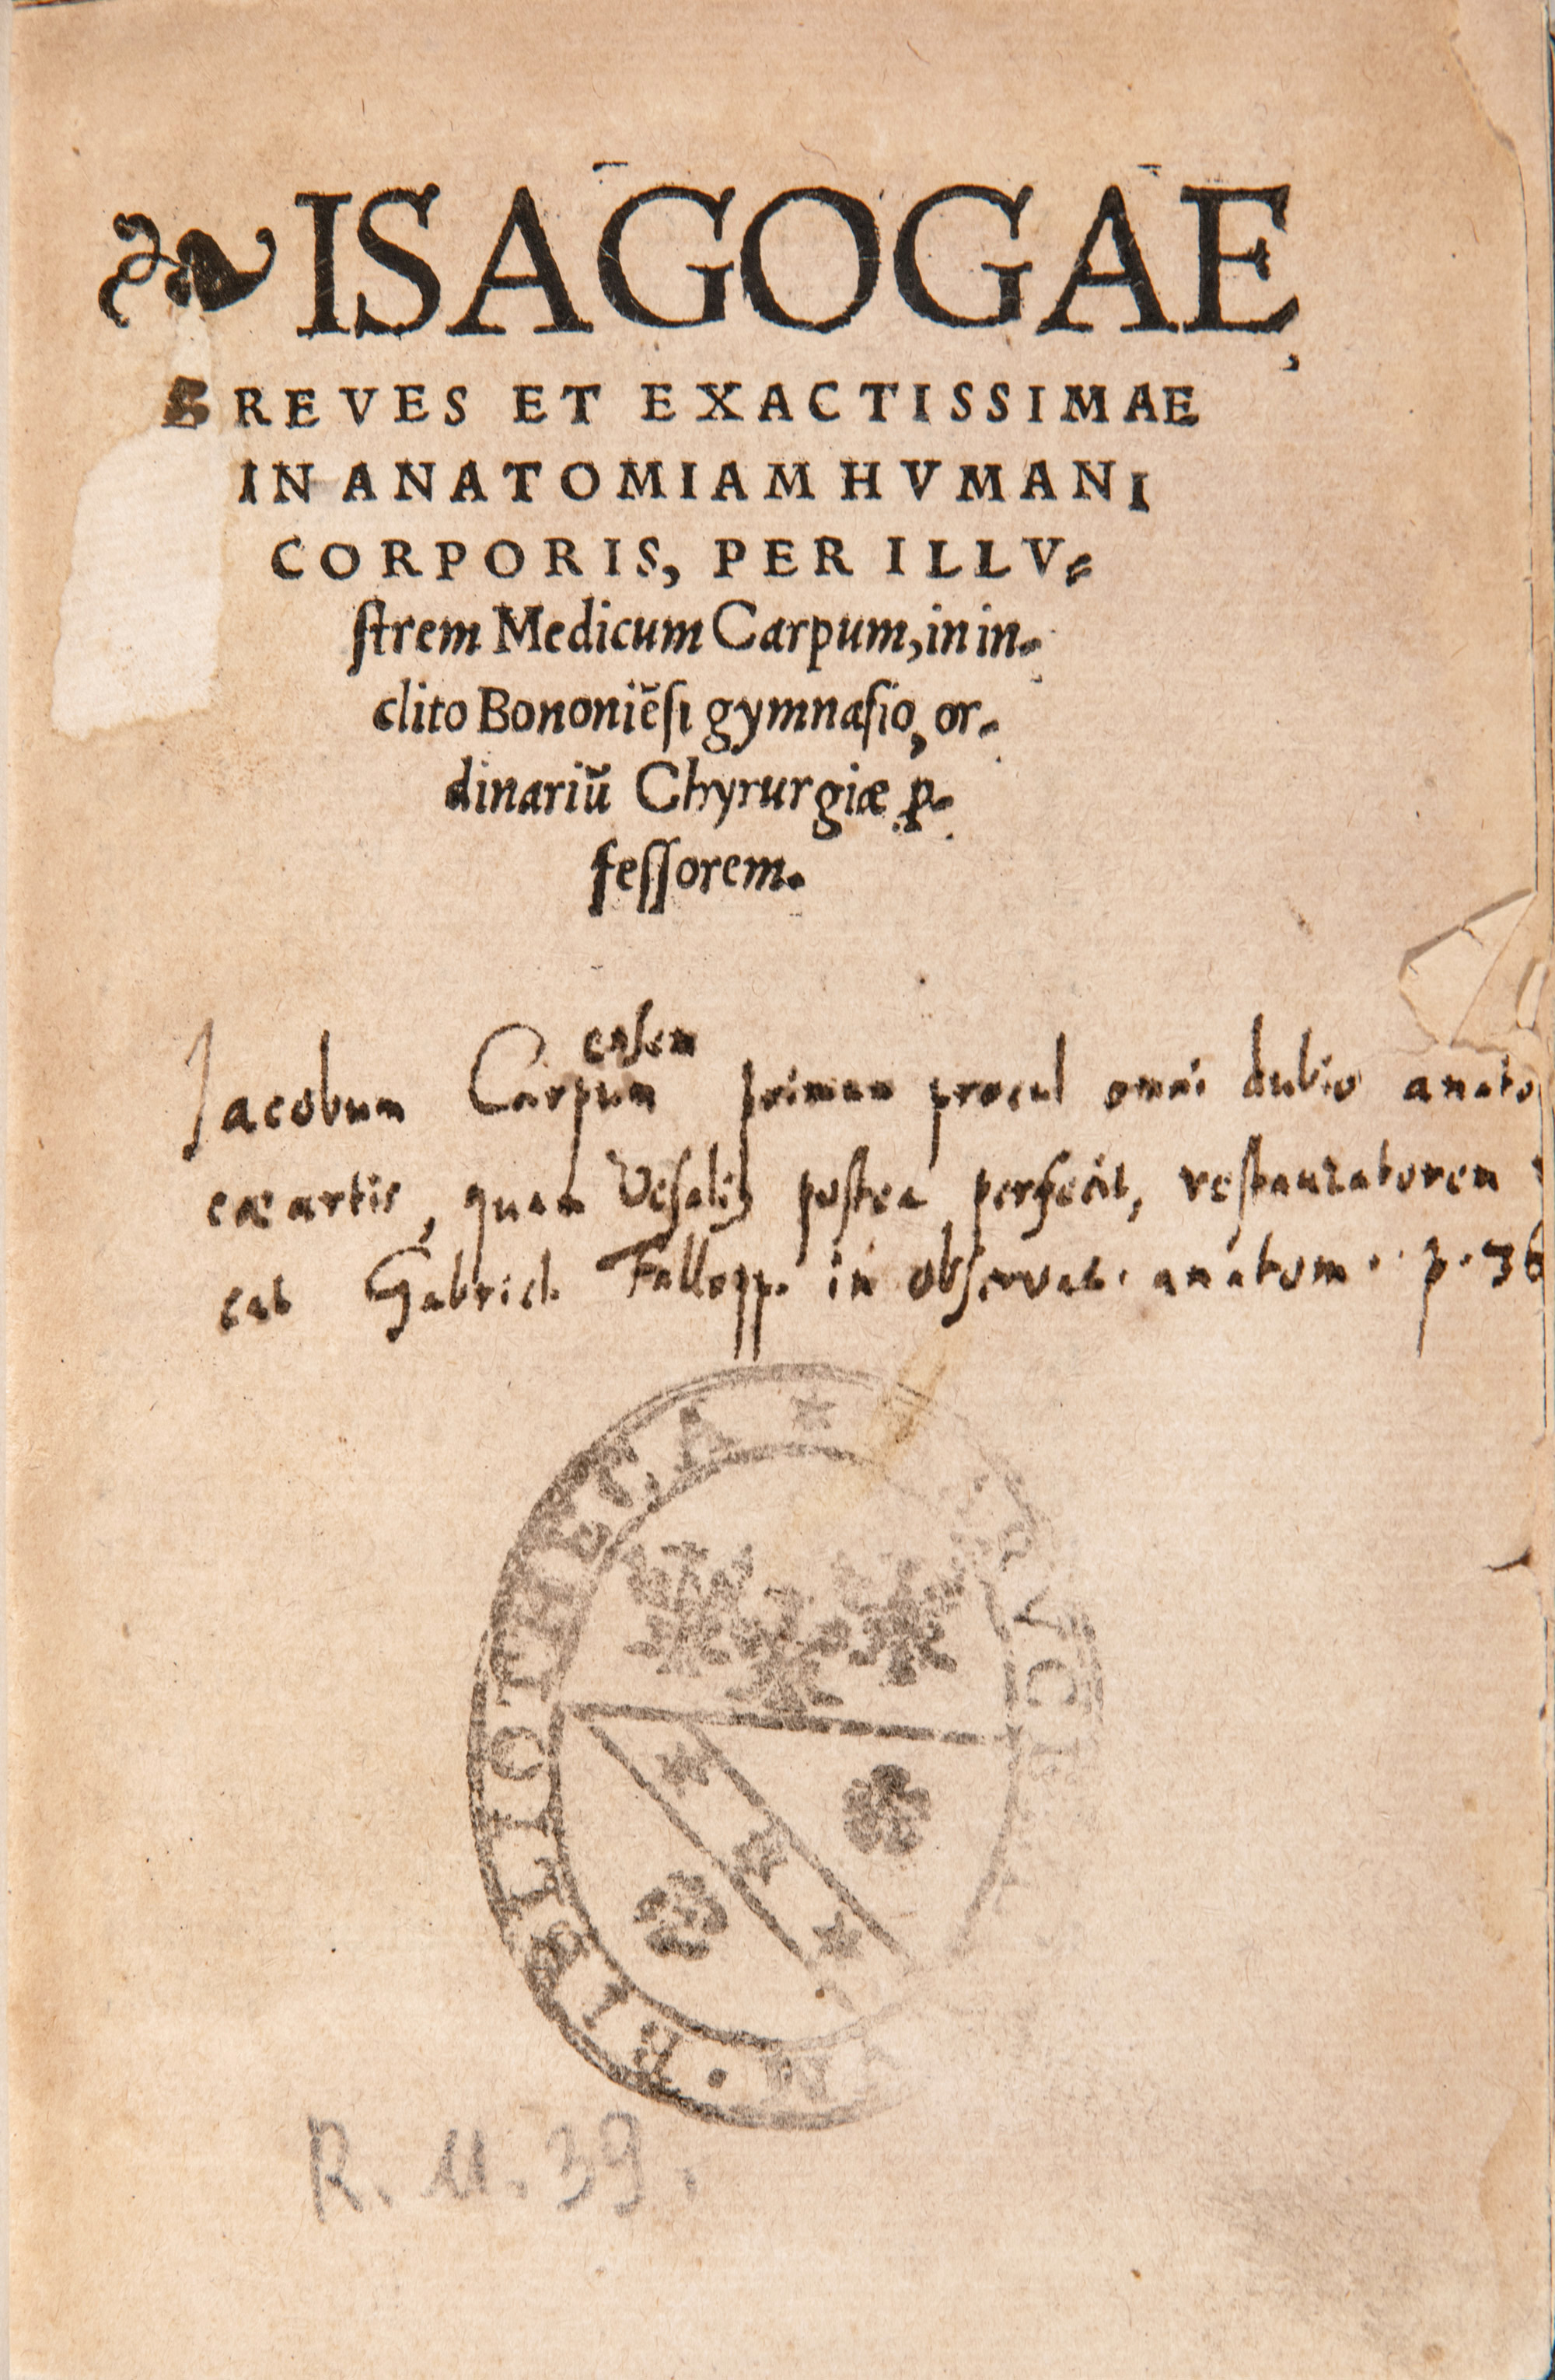 ISAGOGAE,
BREVES ET EXACTISSIMAE
IN ANATOMIAM HVMANI
CORPORIS, PER ILLV⸗
ſtrem Medicum Carpum, in in-
clito Bononiẽſi gymnaſio, or-
dinariũ Chyrurgiæ ꝓ-
feſſorem.
ensem
Jacobum Carpum primum procul omni dubio anato
cæ artis, quam Veſalius poſtea perfecit, reſtauratorem
cat Gabriel. Fallopp. in obſervat. anatom. p. 36
BIBLIOTHECA
R. U. 39.